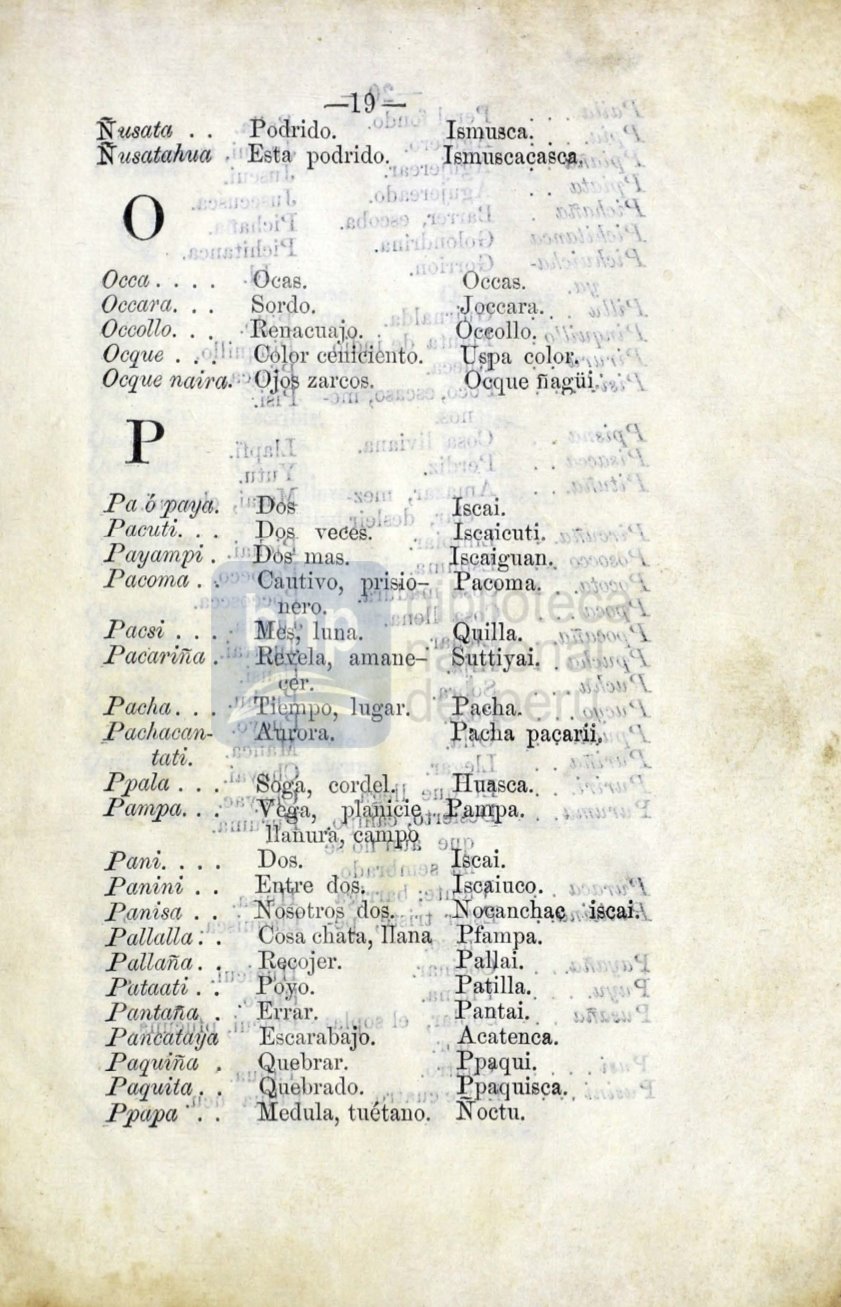 —19—
Ñusata . . Podrido. Ismusca.
Ñusatahua . Esta podrido. Ismuscacasca.
O
Occa . . . . Ocas. Occas.
Occara. . . Sordo. Joccara.
Occollo. . . Renacuajo. Occollo.
Ocque . . . Color ceniciento. Uspa color.
Ocque naira. Ojos zarcos. Ocque ñagüi.
P
Pa ó paya. Dos Iscai.
Pacuti. . . Dos veces. Iscaicuti.
Payampi . Dos mas. Iscaiguan.
Pacoma . . Cautivo, prisio- Pacoma.
nero.
Pacsi . . . . Mes, luna. Quilla.
Pacariña . Revela, amane- Suttiyai.
cer.
Pacha. . . Tiempo, lugar. Pacha.
Pachacan- Aurora. Pacha pacarii.
tati.
Ppala . . . Soga, cordel. Huasca.
Pampa. . . Vega, planicie Pampa.
llanura, campo
Pani. . . . Dos. Iscai.
Panini . . Entre dos. Iscaiuco.
Panisa . . Nosotros dos. Nocanchac iscai.
Pallalla. . Cosa chata, llana Pfampa.
Pallaña. . Recojer. Pallai.
Pataati . . Poyo. Patilla.
Pantaña . Errar. Pantai.
Pancataya Escarabajo. Acatenca.
Paquiña . Quebrar. Ppaqui.
Paquita. . Quebrado. Ppaquisca.
Ppapa . . Medula, tuétano. Ñoctu.
bnp
biblioteca
nacional
del perú